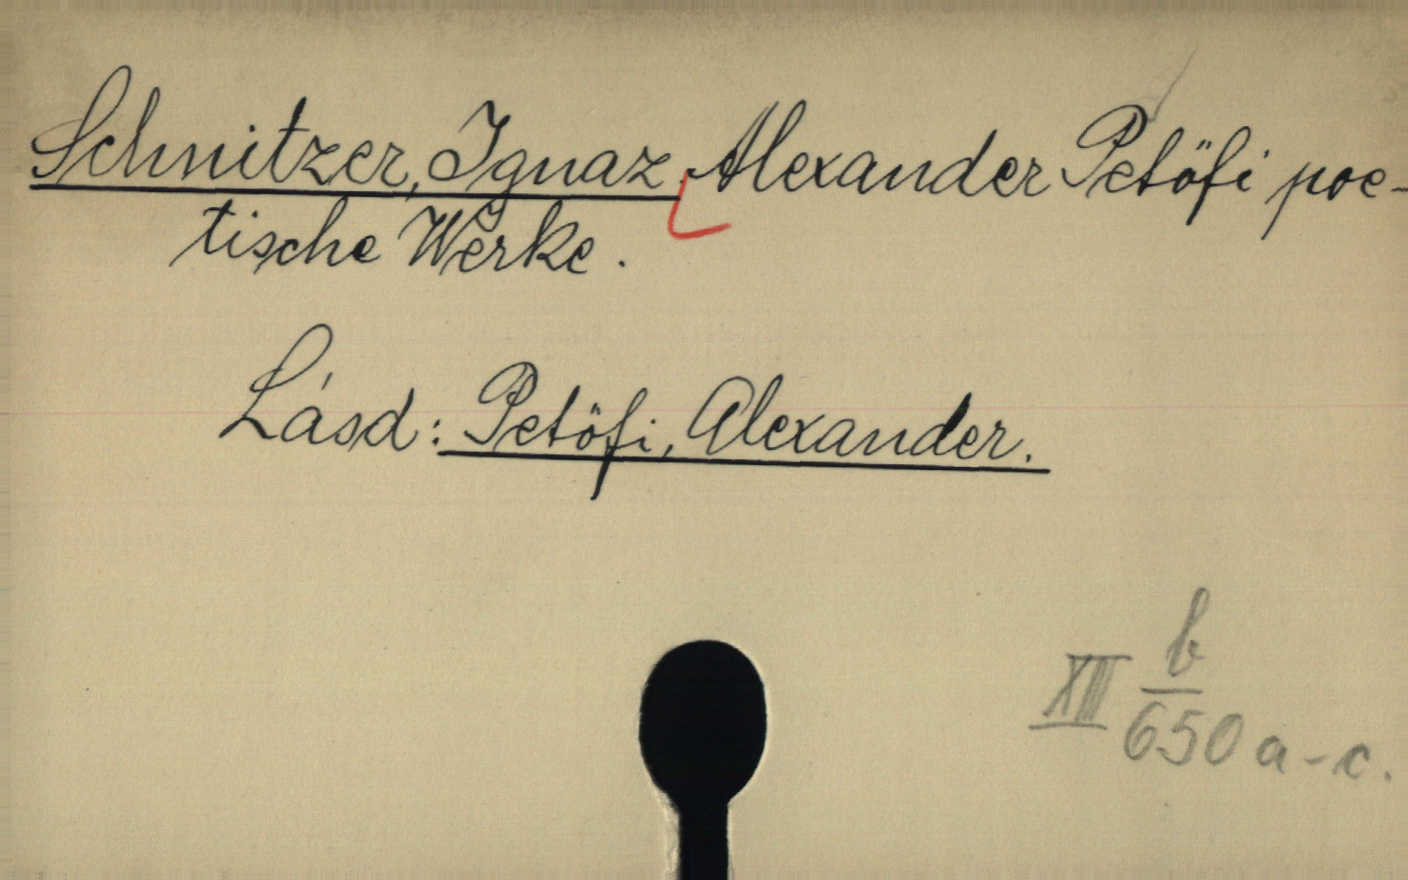 Schnitzer, Ignaz, Alexander Petöfi poe-
tische Werke.
Lásd: Petöfi, Alexander.
XIII b/650 a-c.